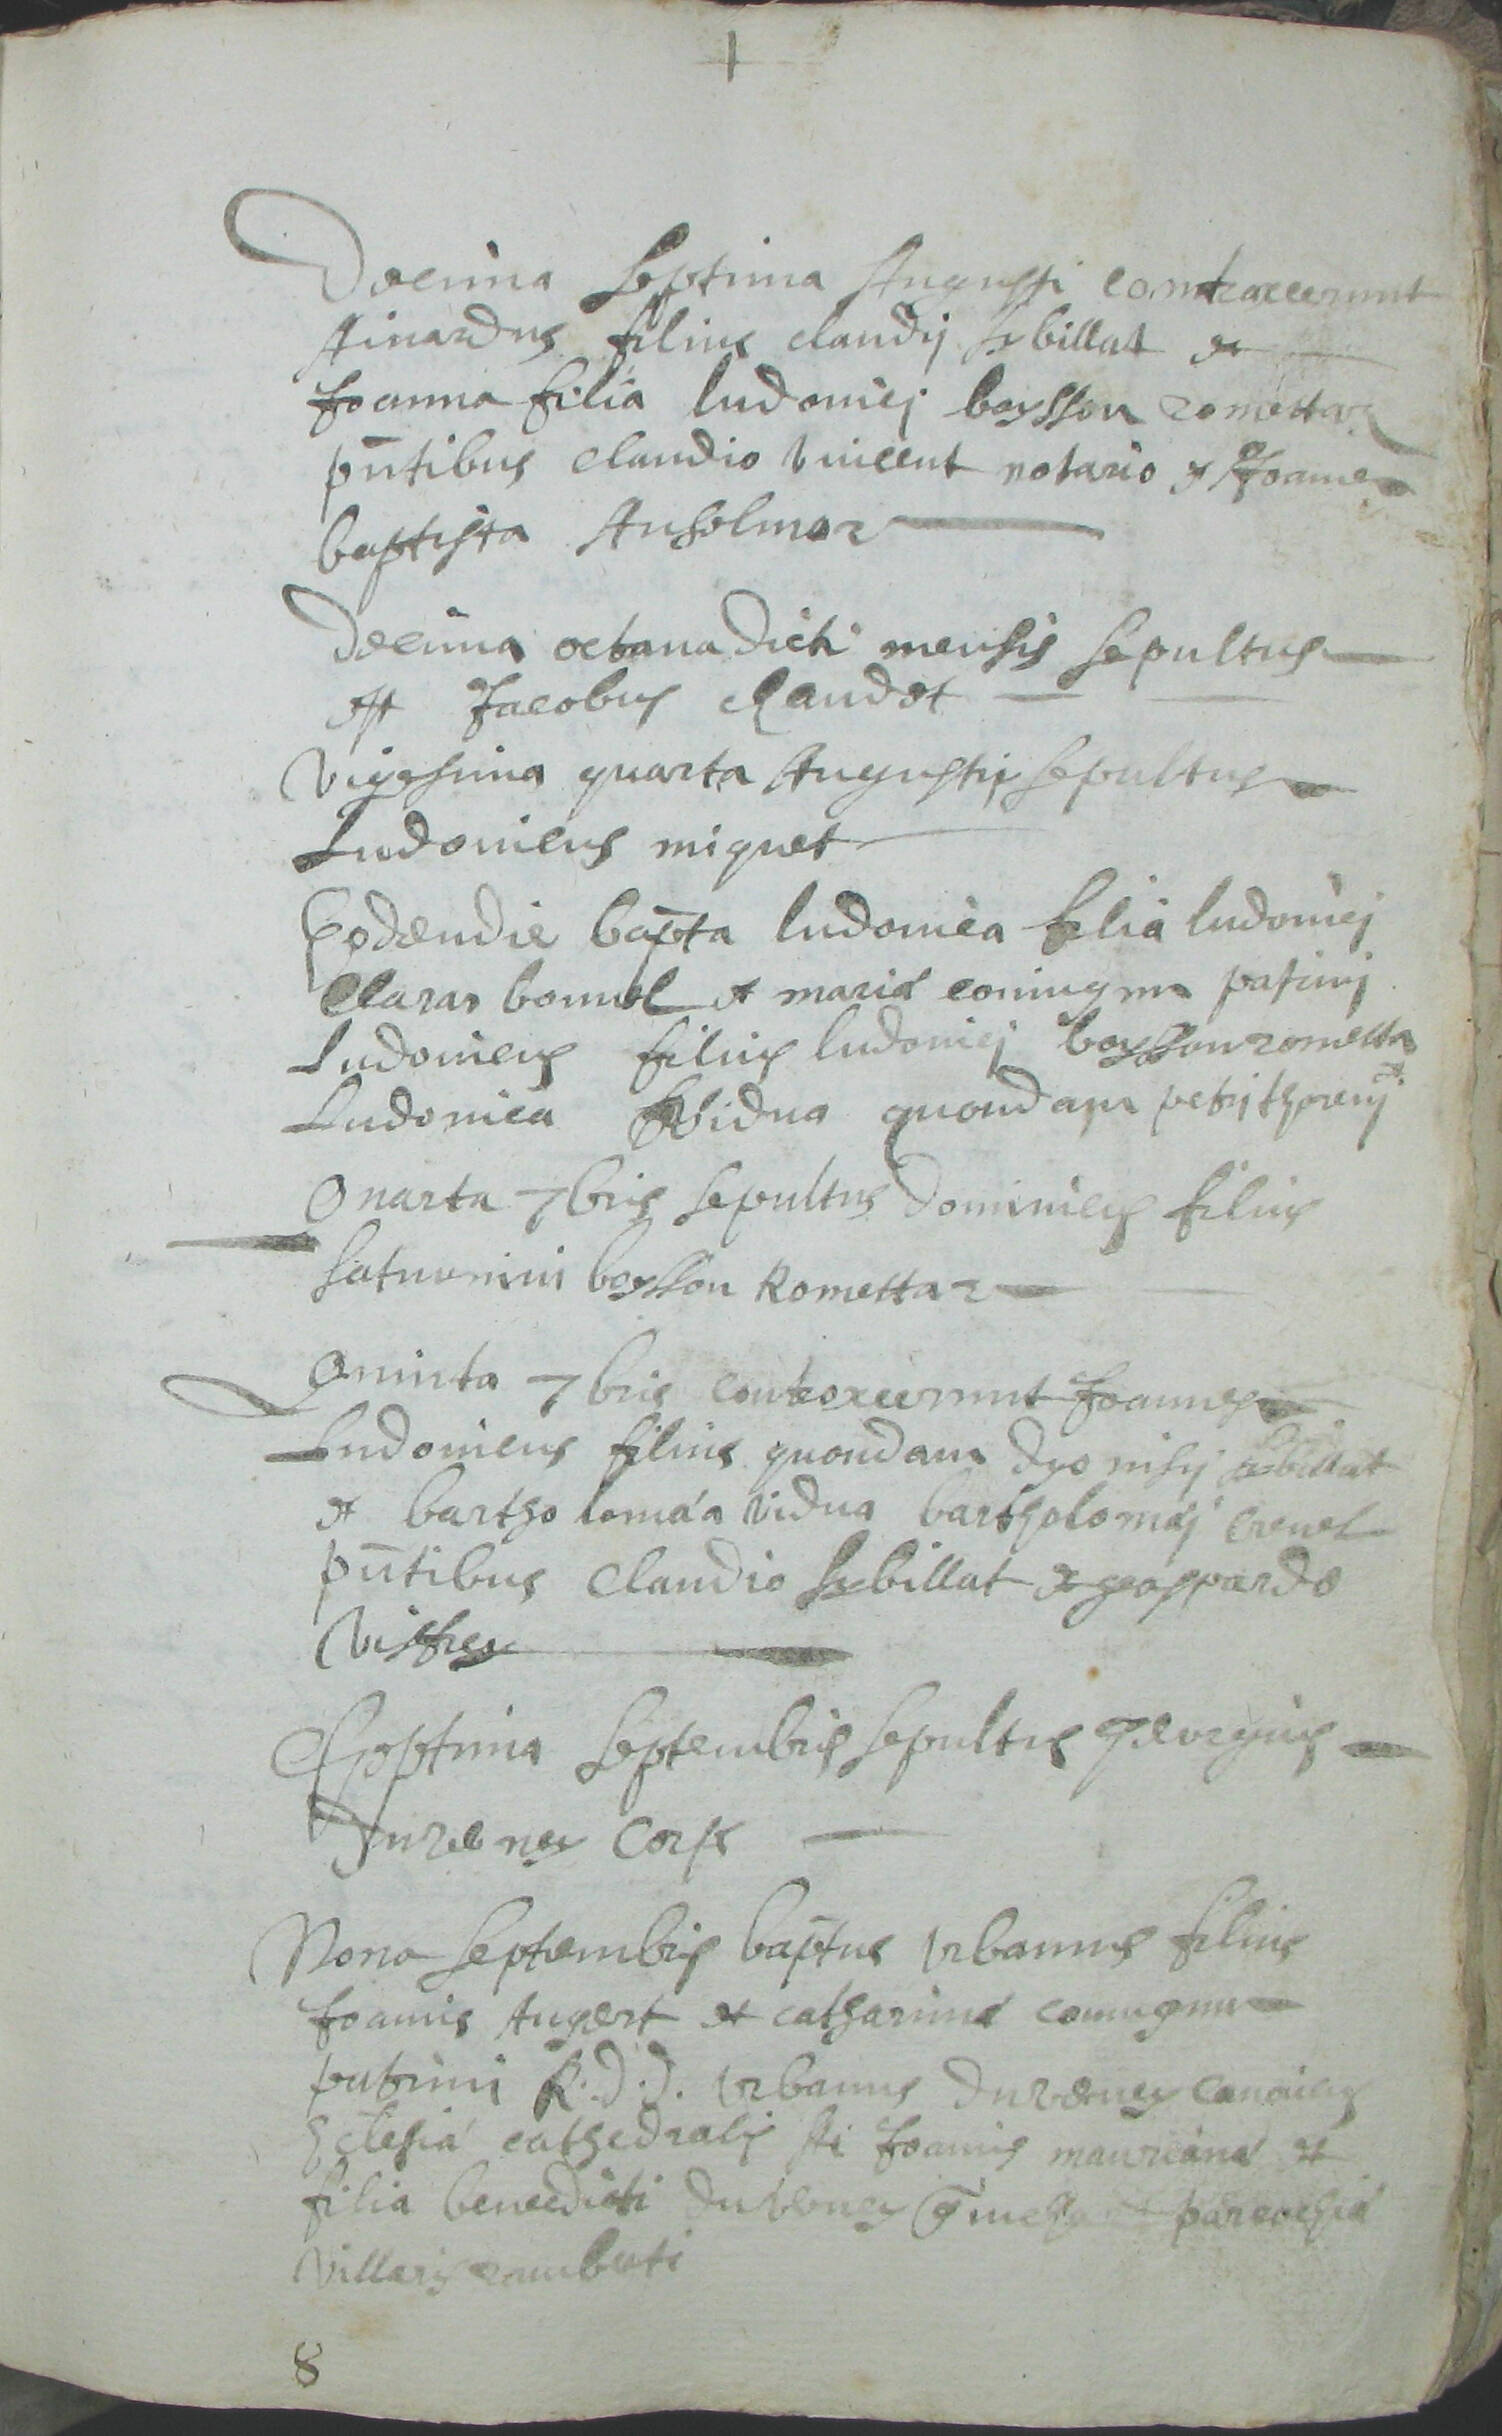 Decima Septima Augusti contraxerunt
Ainardus filius claudij sibillat et
Joanna filia ludovici boysson romettaz
pñtibus claudio vincent notario et Joanne
baptista Anselmoz
Decima octava dicti mensis sepultus
est Jacobus claudet
Vigesima quarta Augustij sepultus
Ludovicus miquet
Eodemdie bapta ludovica filia ludovicj
Claraz bonnel et maria coniugum patrinj
Ludovicus filius ludovicj boysson rometta
et
Ludovica vidua quondam petrj thorenj
Quarta 7bris sepultus dominicus filius
saturnini boysson Romettaz
Quinta 7bris contraxerunt Joannes
Ludovicus filius quondam dyonisij sibillat
et bartholomæa vidua bartholomæj crenel
pñtibus Claudio sibillat et gaspardo
Septima Septembris sepultus Georgius
Durbney Corps
Nona Septembris baptus Urbanus filius
Joannis Augert et catharinæ coniugum
patrini R.D.D. Urbanus Durbney canonicus
Ecclesiæ cathedralis sti Joannis maurianæ et
filia benedicti Durbney parrochiæ
Villarij
8